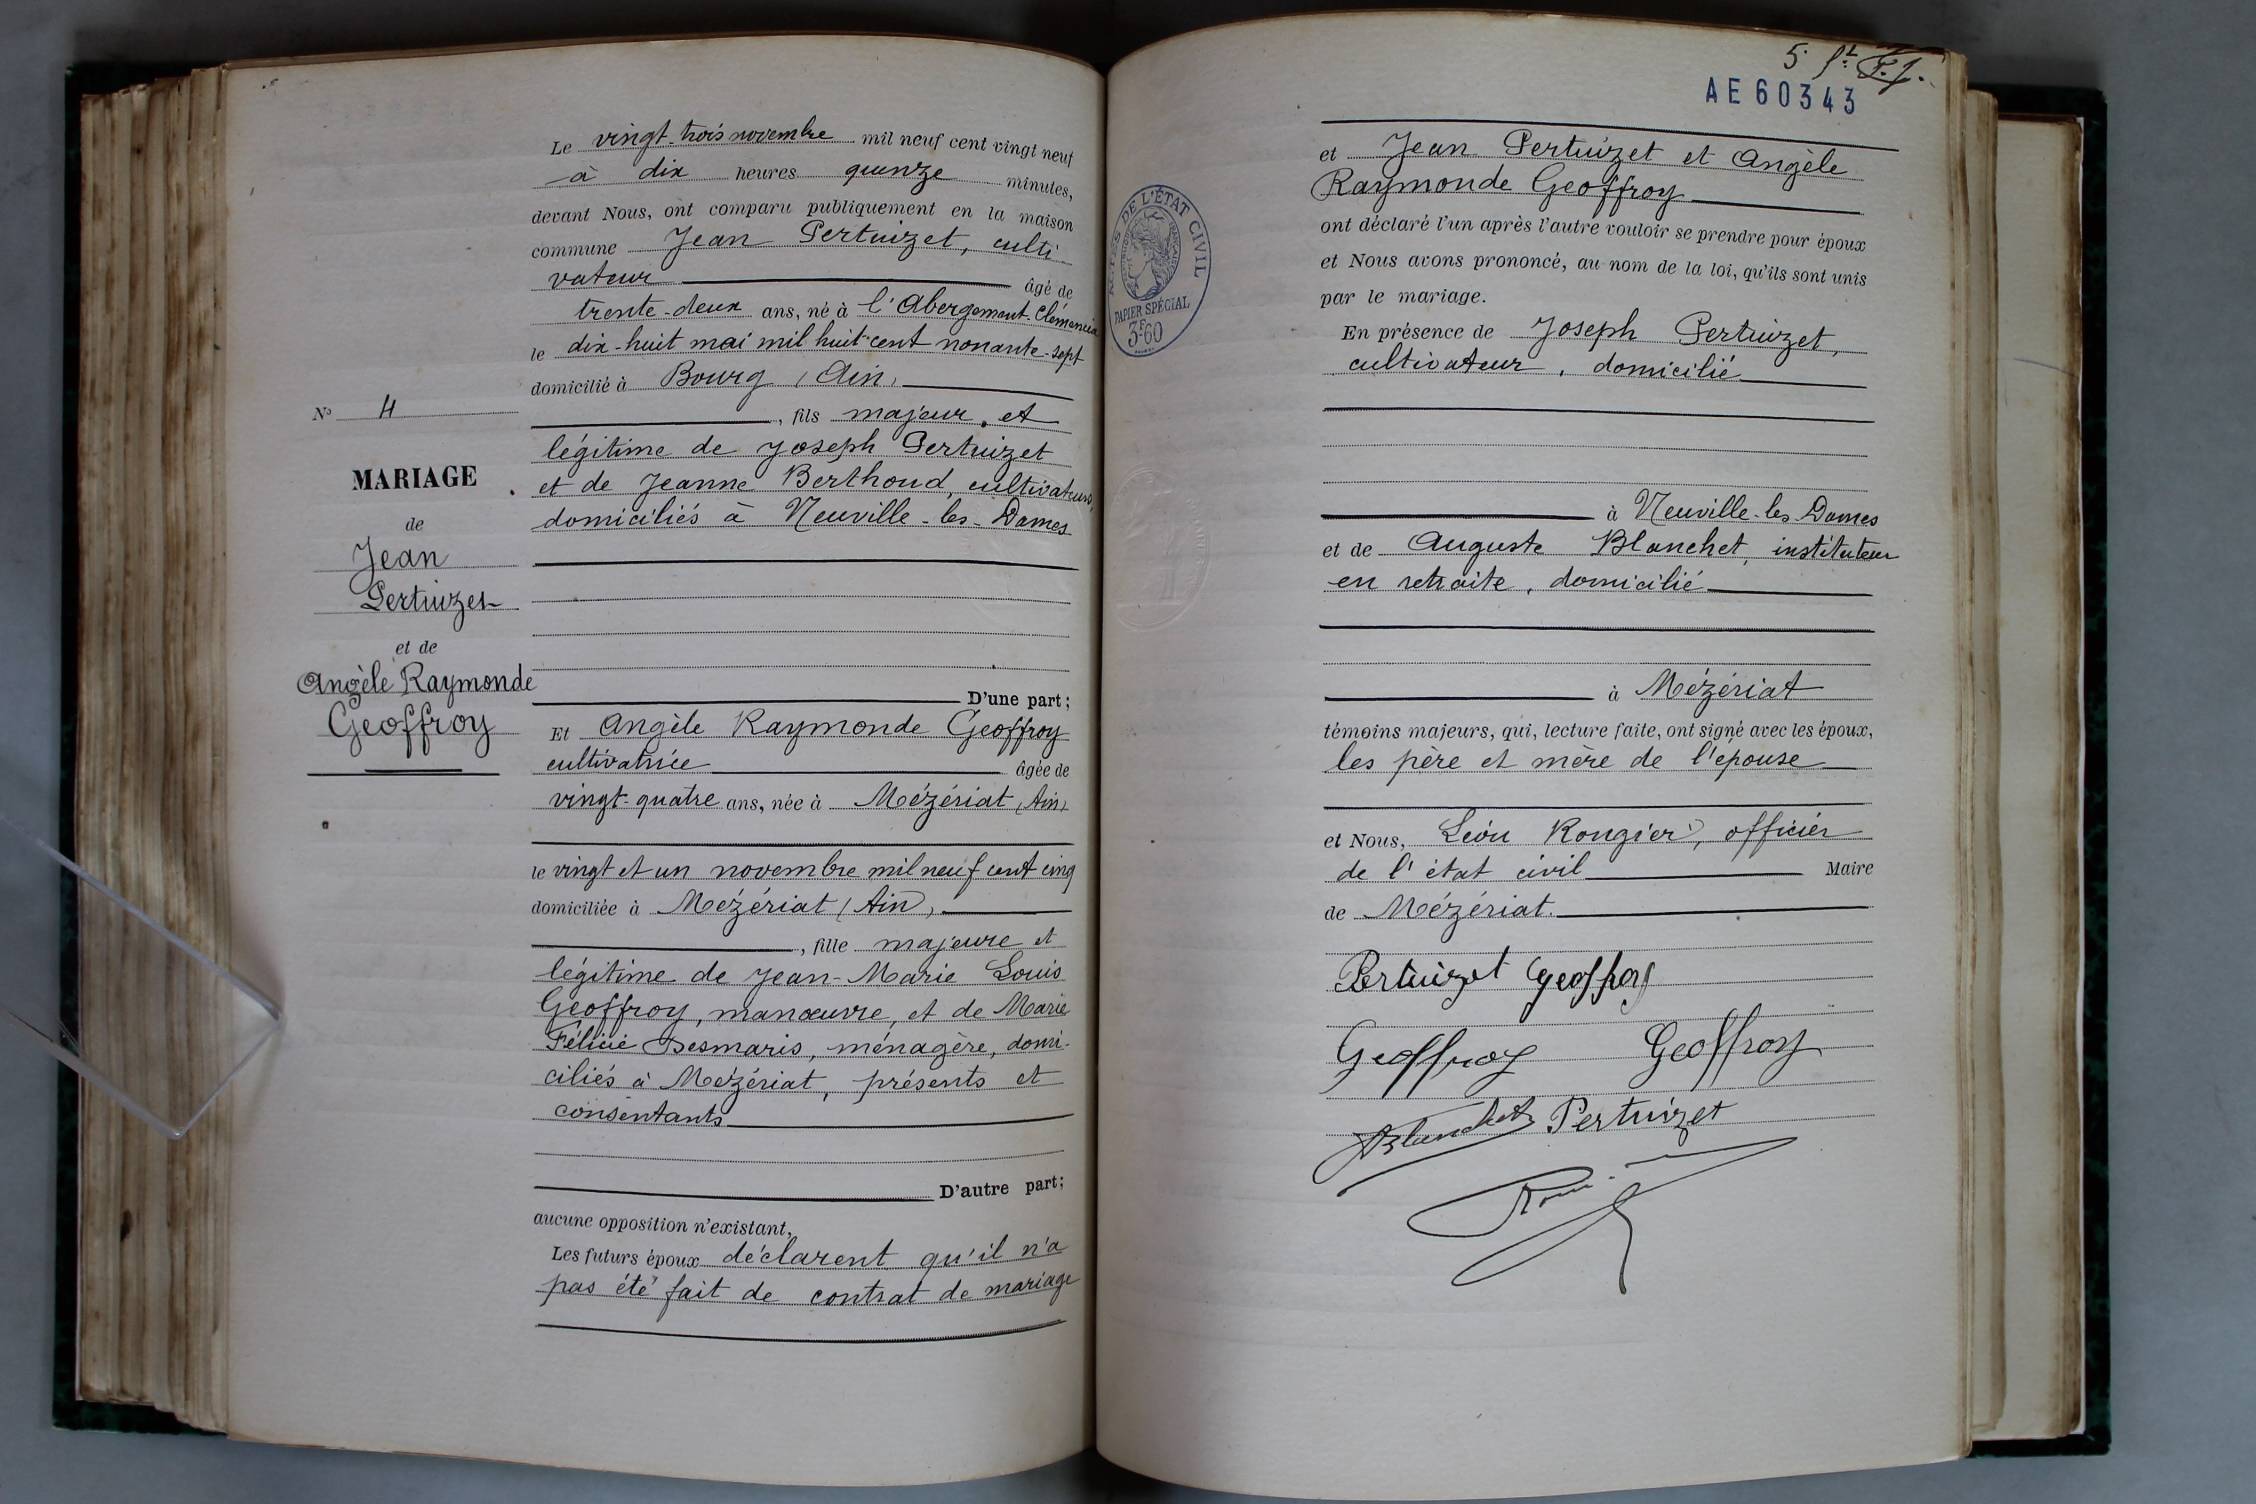 Le vingt-trois novembre mil neuf cent vingt neuf
à dix heures quinze minutes,
devant Nous, ont comparu publiquement en la maison
commune Jean Pertuizet, culti
vateur âgé de
trente-deux ans, né à l'Abergement-Clémencia
le dix-huit mai mil huit cent nonante-sept
domicilié à Bourg (Ain)
, fils majeur et
légitime de Joseph Pertuizet
et de Jeanne Berthoud, cultivateurs,
domiciliés à Neuville-les-Dames
D'une part;
Et Angèle Raymonde Geoffroy
cultivatrice âgée de
vingt-quatre ans, née à Mézériat (Ain)
le vingt et un novembre mil neuf cent cinq
domiciliée à Mézériat (Ain),
, fille majeure et
légitime de Jean-Marie Louis
Geoffroy, manœuvre, et de Marie
Félicie Desmaris, ménagère, domi-
ciliés à Mézériat, présents et
consentants
D'autre part;
aucune opposition n'existant,
Les futurs époux déclarent qu'il n'a
pas été fait de contrat de mariage
No 4
MARIAGE
de
Jean
Pertuizet
et de
Angèle Raymonde
Geoffroy
5
AE60343
ACTES DE L'ÉTAT CIVIL
PAPIER SPÉCIAL
3F60
et Jean Pertuizet et Angèle
Raymonde Geoffroy
ont déclaré l'un après l'autre vouloir se prendre pour époux
et Nous avons prononcé, au nom de la loi, qu'ils sont unis
par le mariage.
En présence de Joseph Pertuizet,
cultivateur, domicilié
à Neuville-les-Dames
et de Auguste Blanchet, instituteur
en retraite, domicilié
à Mézériat
témoins majeurs, qui, lecture faite, ont signé avec les époux,
les père et mère de l'épouse
et Nous, Léon Rougier, officier
de l'état civil Maire
de Mézériat.
Pertuizet Geoffroy
Geoffroy Geoffroy
ABlanchet Pertuizet